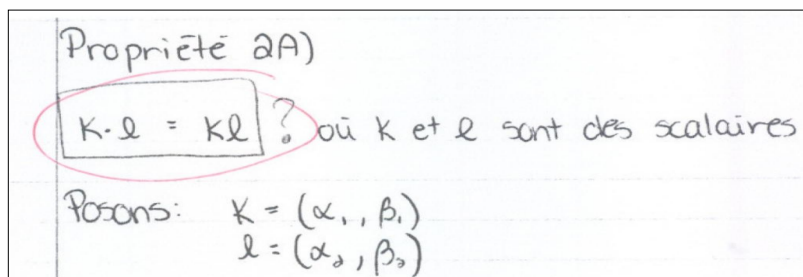 Propriété 2A)
K·l = Kl ? où K et l sont des scalaires
Posons: K = (α₁, β₁)
l = (α₂, β₂)